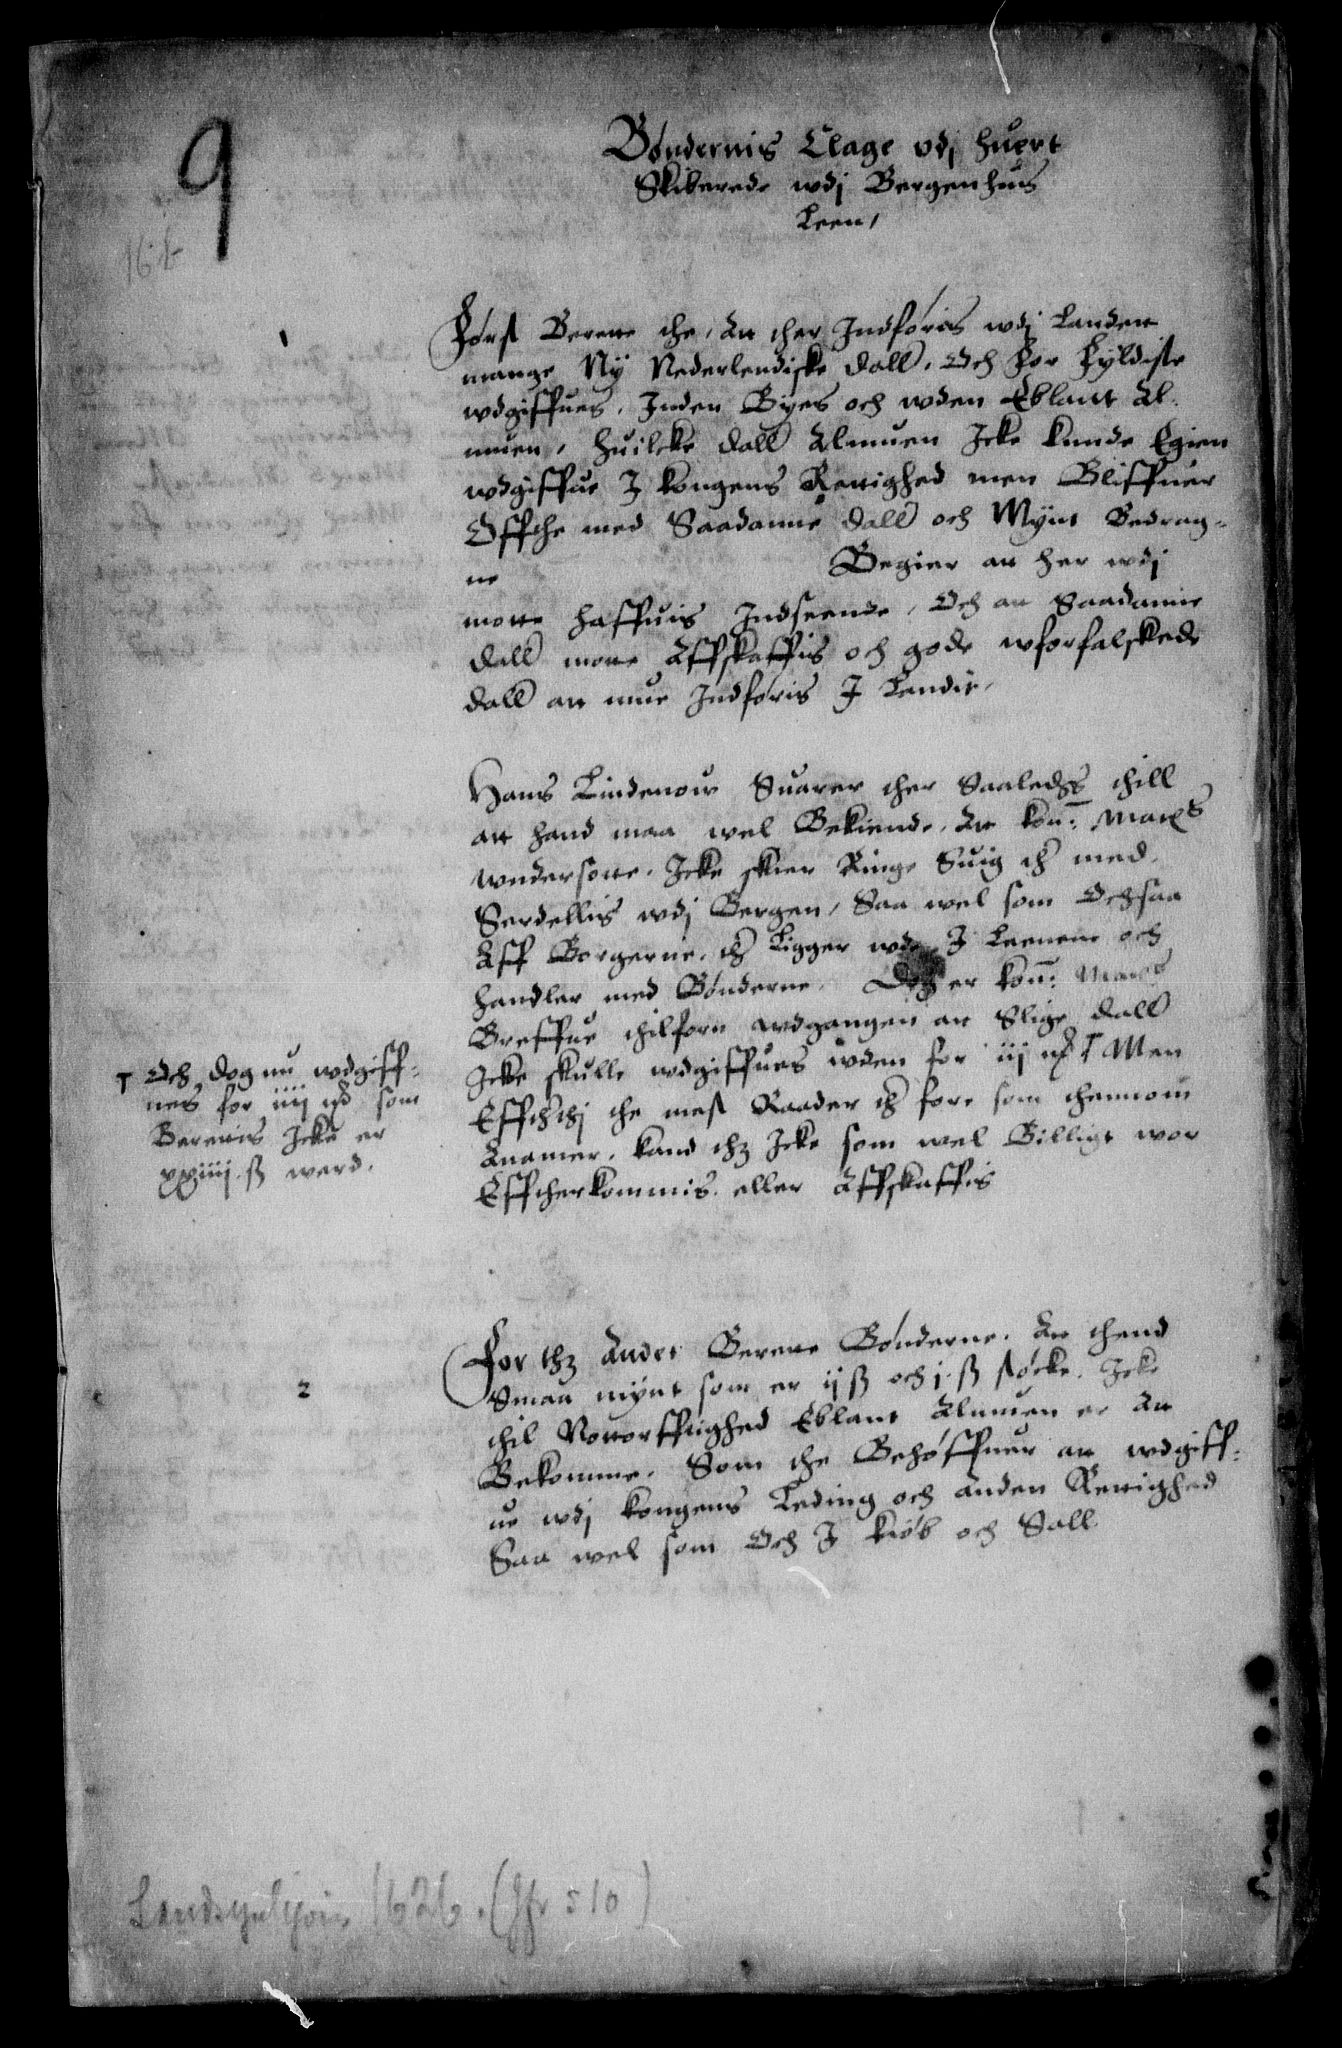 9
Bøndernis Clage vdj huert
Skiberede wdj Bergenhus
Leen,
1
Først Berette the, At ther Indføris wdj Landett
mange Ny Nederlendiske dall, Och for fyldiste
wdgiffues, Inden Byes och wden Eblant Al-
muen, huilcke dall Almuen Icke kunde Egien
wdgiffue J kongens Rettighed men Bliffuer
Offthe med Saadanne dall och Mynt Bedrag-
ne
Begier att her wdj
motte haffuis Indseende, Och att Saadanne
dall motte Affskaffis och gode wforfalskede
dall att mue Indføris J Landit,
Hans Lindenow Suarer ther Saaledhs thill
att hand maa wel Bekiende, At kon: Matts
wndersotte, Icke skier Ringe Suig med
Serdellis wdj Bergen, Saa wel som Ochsaa
Aff Borgerne, Ligger wde J Leenene och
handler med Bønderne, Dog er kon: Matts
Breffue thilforn wdgangen at Slige dall
Icke skulle wdgiffues wden for iij ⊤ Men
Effththj the mest Raader fore som thennom
Anamer, kand thz Icke som wel Billigt wor
Efftherkommis, eller Affskaffis
⊤ Och dog nu wdgiff-
ues for iiij som
Berettis Icke er
xxiiij ß werd.
2
For thz Andet Berette Bønderne, At thend
Smaa mynt som er ij ß och j ß støcke, Icke
thil Nottorfftighed Eblant Almuen er At
Bekomme, Som the Behøffuer att wdgiff-
ue wdj kongens Leding och anden Rettighed
Saa wel som Och J kiøb och Sall
1626. (Jfr 510)